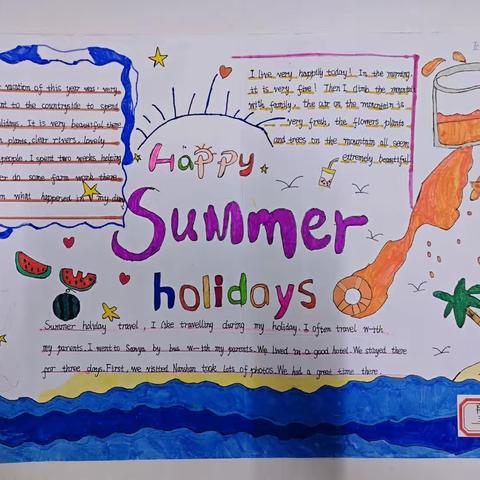 vacation of this year was very
nt to the countryside to spend
lidays. It is very beautiful there
plants, clear rivers, lovely
people. I spent two weeks helping
er do some farm work there
n what happened in my diary
I live very happily today! In the morning,
it is very fine! Then I climb the mountain
with family, the air on the mountain is
very fresh, the flowers plants
and trees on the mountain all seem
extremely beautiful
Happy
Summer
holidays
Summer holiday travel, I like travelling during my holiday. I often travel with
my parents. I went to Sanya by bus with my parents. We lived in a good hotel. We stayed there
for three days. First, we visited Nanshan took lots of photos. We had a great time there.